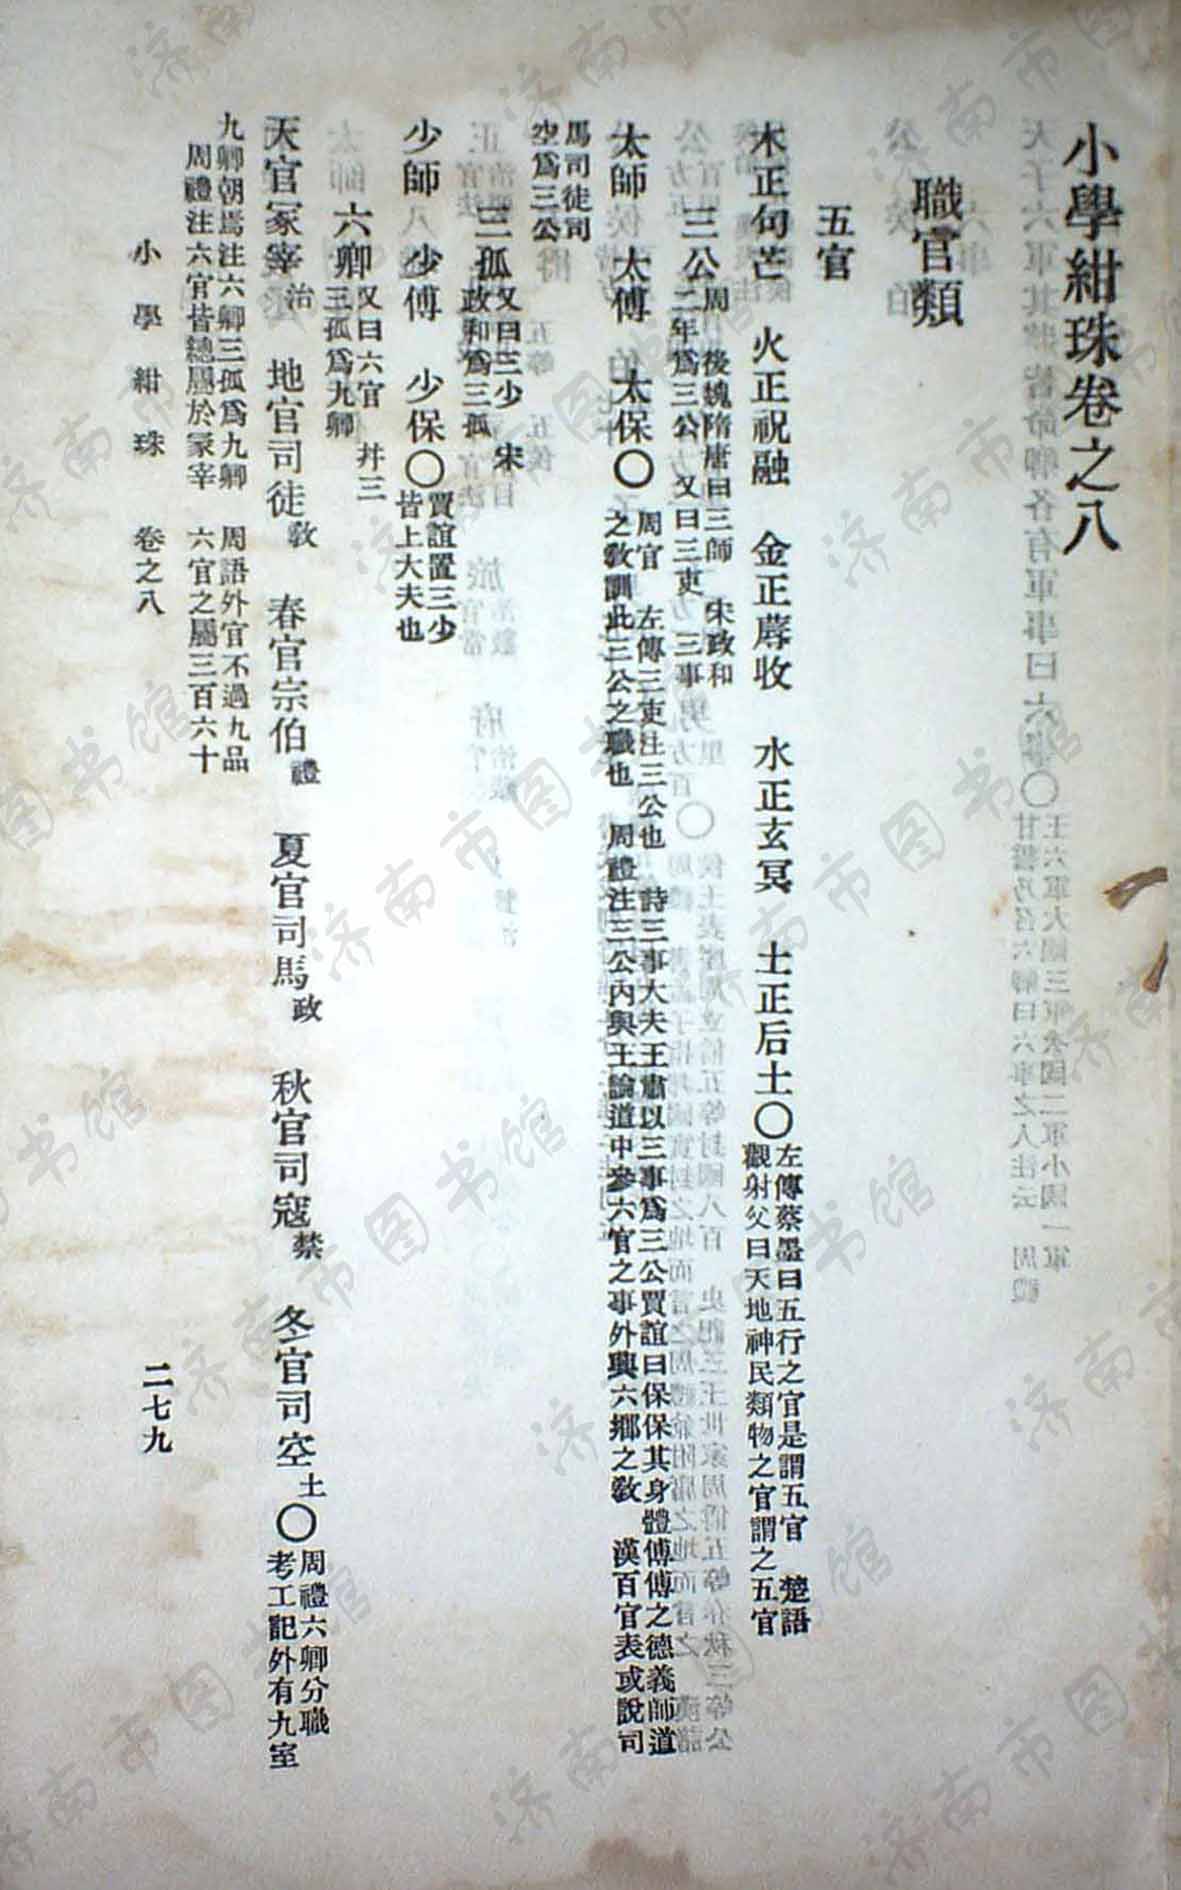 小學紺珠卷之八
職官類
五官
木正句芒　火正祝融　金正蓐收　水正玄冥　土正后土〇左傳蔡墨曰五行之官是謂五官　楚語
觀射父曰天地神民類物之官謂之五官
三公周　後魏隋唐曰三師　宋政和
二年爲三公　又曰三吏　三事
太師　太傅　太保〇周官　左傳三吏注三公也　詩三事大夫王肅以三事爲三公賈誼曰保保其身體傅傅之德義師道
之敎訓此三公之職也　周禮注三公內與王論道中參六官之事外與六鄉之敎　漢百官表或說司
馬司徒司
空爲三公
三孤又曰三少　宋
政和爲三孤
少師　少傅　少保〇賈誼置三少
皆上大夫也
六卿又曰六官　幷三
三孤爲九卿
天官冢宰治　地官司徒敎　春官宗伯禮　夏官司馬政　秋官司寇禁　冬官司空土〇周禮六卿分職
考工記外有九室
九卿朝焉注六卿三孤爲九卿　周語外官不過九品
周禮注六官皆總屬於冢宰　六官之屬三百六十
小學紺珠　卷之八　二七九
济南市图书馆